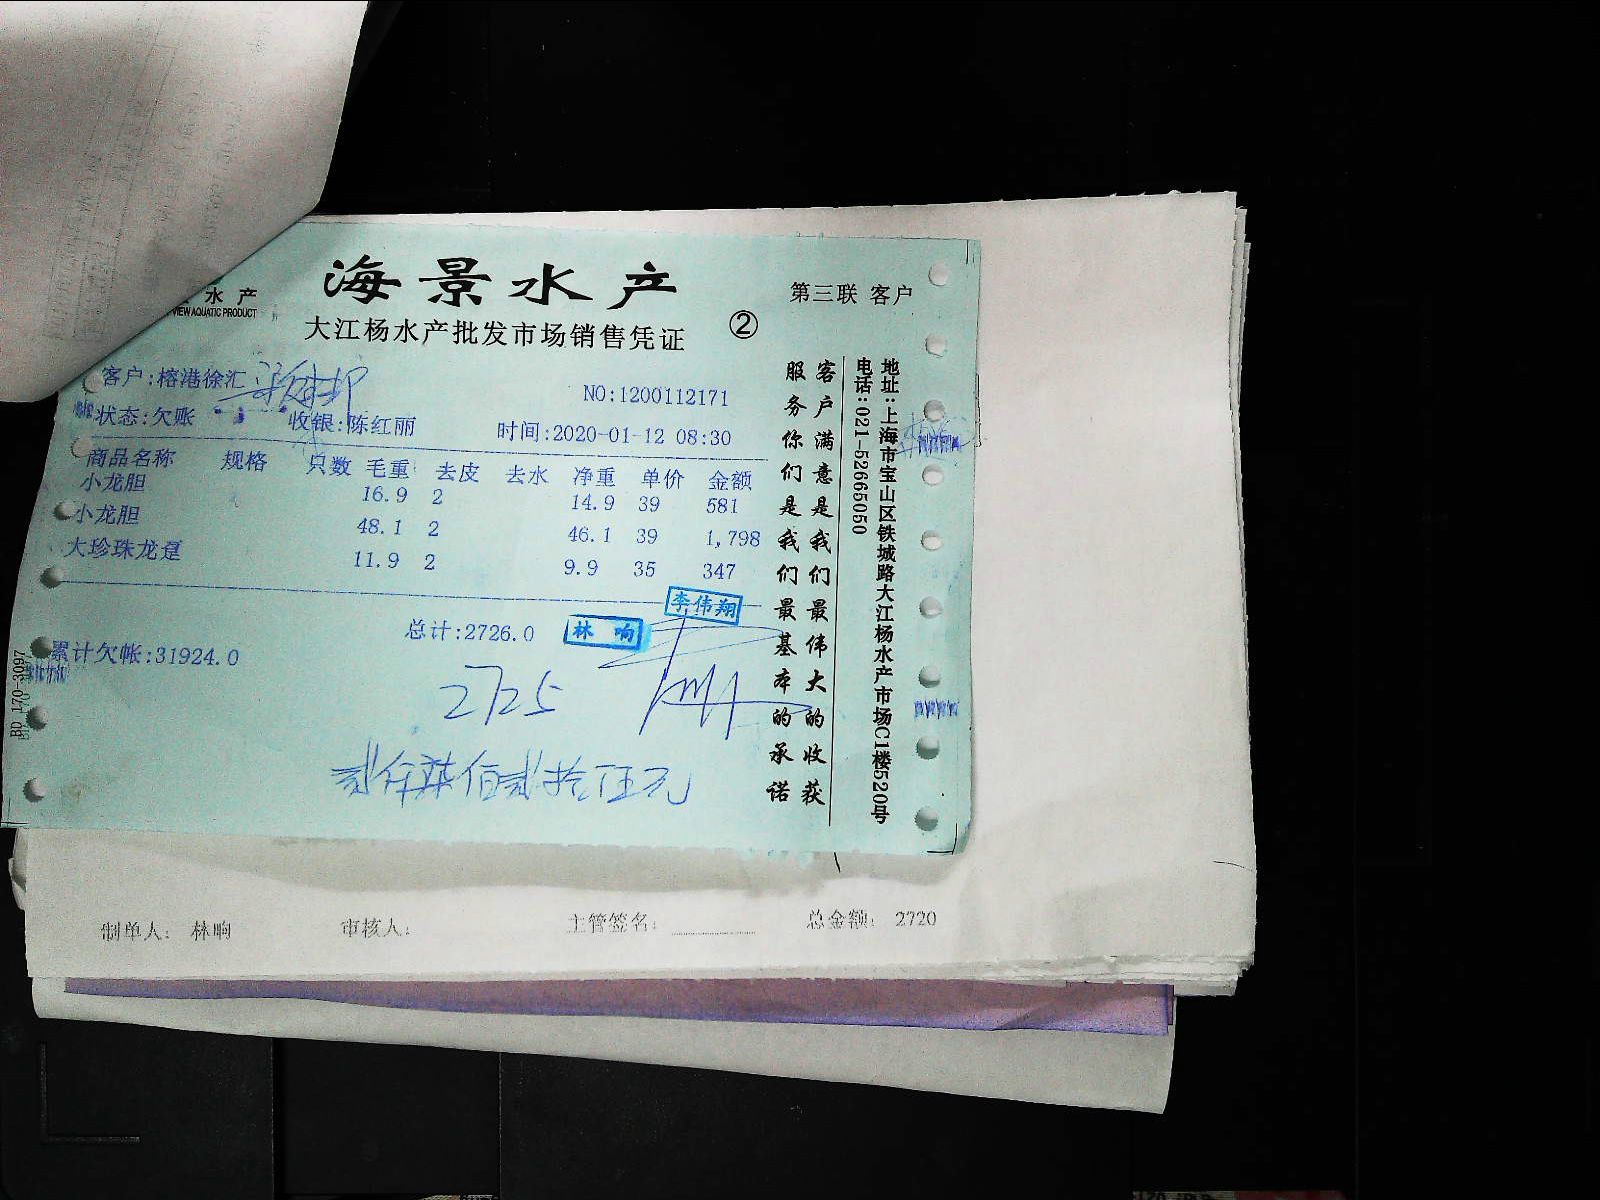 水产
VIEW AQUATIC PRODUCT
海景水产
大江杨水产批发市场销售凭证
②
第三联 客户
客户:榕港徐汇
NO:1200112171
状态:欠账 收银:陈红丽 时间:2020-01-12 08:30
商品名称 规格 只数 毛重 去皮 去水 净重 单价 金额
小龙胆 16.9 2 14.9 39 581
小龙胆 48.1 2 46.1 39 1,798
大珍珠龙趸 11.9 2 9.9 35 347
李伟翔
总计:2726.0 林 响
累计欠帐:31924.0
2725
贰仟柒佰贰拾伍元
客户满意是我们最伟大的收获
服务你们是我们最基本的承诺
地址:上海市宝山区铁城路大江杨水产市场C1楼520号
电话:021-52665050
BD 170-3097
制单人: 林响 审核人: 主管签名: 总金额: 2720